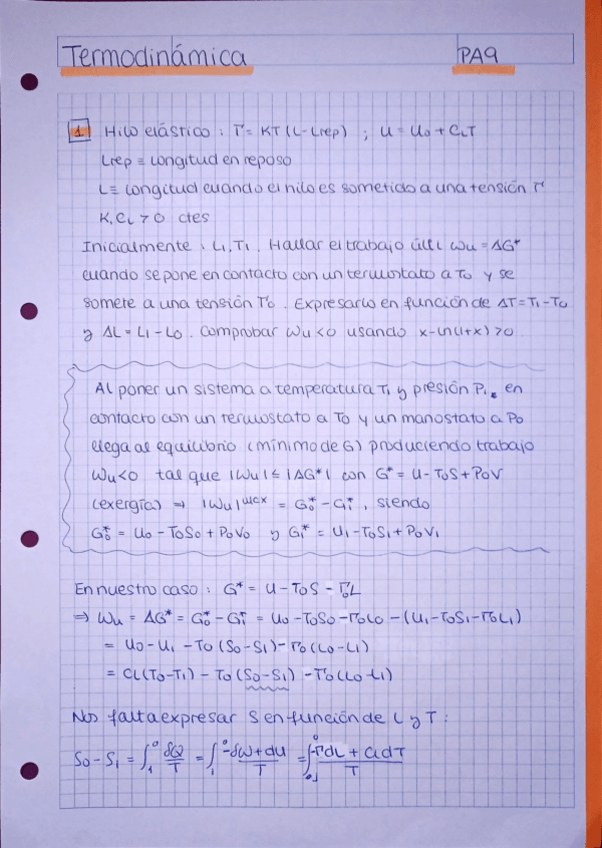 Termodinámica PA9
1 Hilo elástico : Γ = KT (L - Lrep) ; U = U₀ + C_L T
Lrep ≡ longitud en reposo
L ≡ longitud cuando el hilo es sometido a una tensión Γ
K, C_L > 0 ctes
Inicialmente : L₁, T₁. Hallar el trabajo útil Wu = ΔG*
cuando se pone en contacto con un termostato a T₀ y se
somete a una tensión Γ₀. Expresarlo en función de ΔT = T₁ - T₀
y ΔL = L₁ - L₀. Comprobar Wu < 0 usando x - ln(1+x) > 0.
Al poner un sistema a temperatura T₁ y presión P₁, en
contacto con un termostato a T₀ y un manostato a P₀
llega al equilibrio (mínimo de G) produciendo trabajo
Wu < 0 tal que |Wu| ≤ |ΔG*| con G* = U - T₀S + P₀V
(exergía) ⇒ |Wu|ᵐᵃˣ = G₀* - G₁*, siendo
G₀* = U₀ - T₀S₀ + P₀V₀ y G₁* = U₁ - T₀S₁ + P₀V₁
En nuestro caso : G* = U - T₀S - Γ₀L
⇒ Wu = ΔG* = G₀* - G₁* = U₀ - T₀S₀ - Γ₀L₀ - (U₁ - T₀S₁ - Γ₀L₁)
= U₀ - U₁ - T₀ (S₀ - S₁) - Γ₀ (L₀ - L₁)
= C_L (T₀ - T₁) - T₀ (S₀ - S₁) - Γ₀ (L₀ - L₁)
Nos falta expresar S en función de L y T :
S₀ - S₁ = ∫₁⁰ δQ/T = ∫₁⁰ (-δW + dU)/T = ∫₁⁰ (-ΓdL + C_L dT)/T